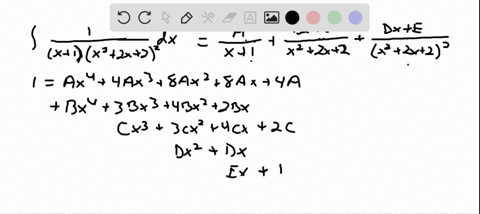 ∫ 1/((x+1)(x²+2x+2)²) dx = A/(x+1) + /(x²+2x+2) + (Dx+E)/(x²+2x+2)²
1 = Ax⁴ + 4Ax³ + 8Ax² + 8Ax + 4A
+ Bx⁴ + 3Bx³ + 4Bx² + 2Bx
Cx³ + 3Cx² + 4Cx + 2C
Dx² + Dx
Ex + 1